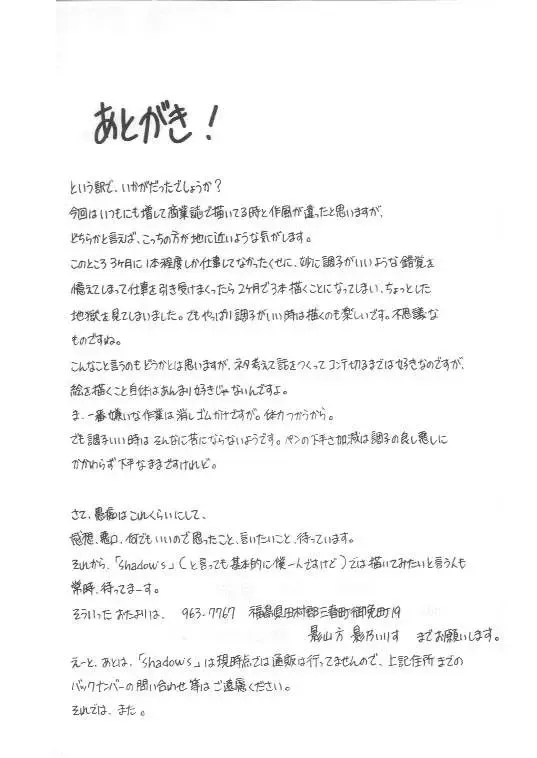 あとがき！
という訳で、いかがだったでしょうか？
今回はいつもにも増して商業誌で描いてる時と作風が違ったと思いますが、
どちらかと言えば、こっちの方が地に近いような気がします。
このところ3ヶ月に1本程度しか仕事してなかったくせに、妙に調子がいいような錯覚を
憶えてしまって仕事を引き受けまくったら2ヶ月で3本描くことになってしまい、ちょっとした
地獄を見てしまいました。でもやっぱり調子がいい時は描くのも楽しいです。不思議な
ものですね。
こんなこと言うのもどうかとは思いますが、ネタ考えて話をつくってコンテ切るまでは好きなのですが、
絵を描くこと自体はあんまり好きじゃないんですよ。
ま、一番嫌いな作業は消しゴムがけですが。体力つかうから。
でも調子いい時はそんなに苦にならないようです。ペンの下手さ加減は調子の良し悪しに
かかわらず下手なままですけれど。
さて、愚痴はこれくらいにして、
感想、悪口、何でもいいので思ったこと、言いたいこと、待っています。
それから、「Shadow's」（と言っても基本的に僕一人ですけど）では描いてみたいと言う人も
常時、待ってまーす。
そういったおたよりは、 963-7767 福島県田村郡三春町御免町19
影山方 影乃いりす までお願いします。
えーと、あとは、「Shadow's」は現時点では通販は行ってませんので、上記住所までの
バックナンバーの問い合わせ等はご遠慮ください。
それでは、また。